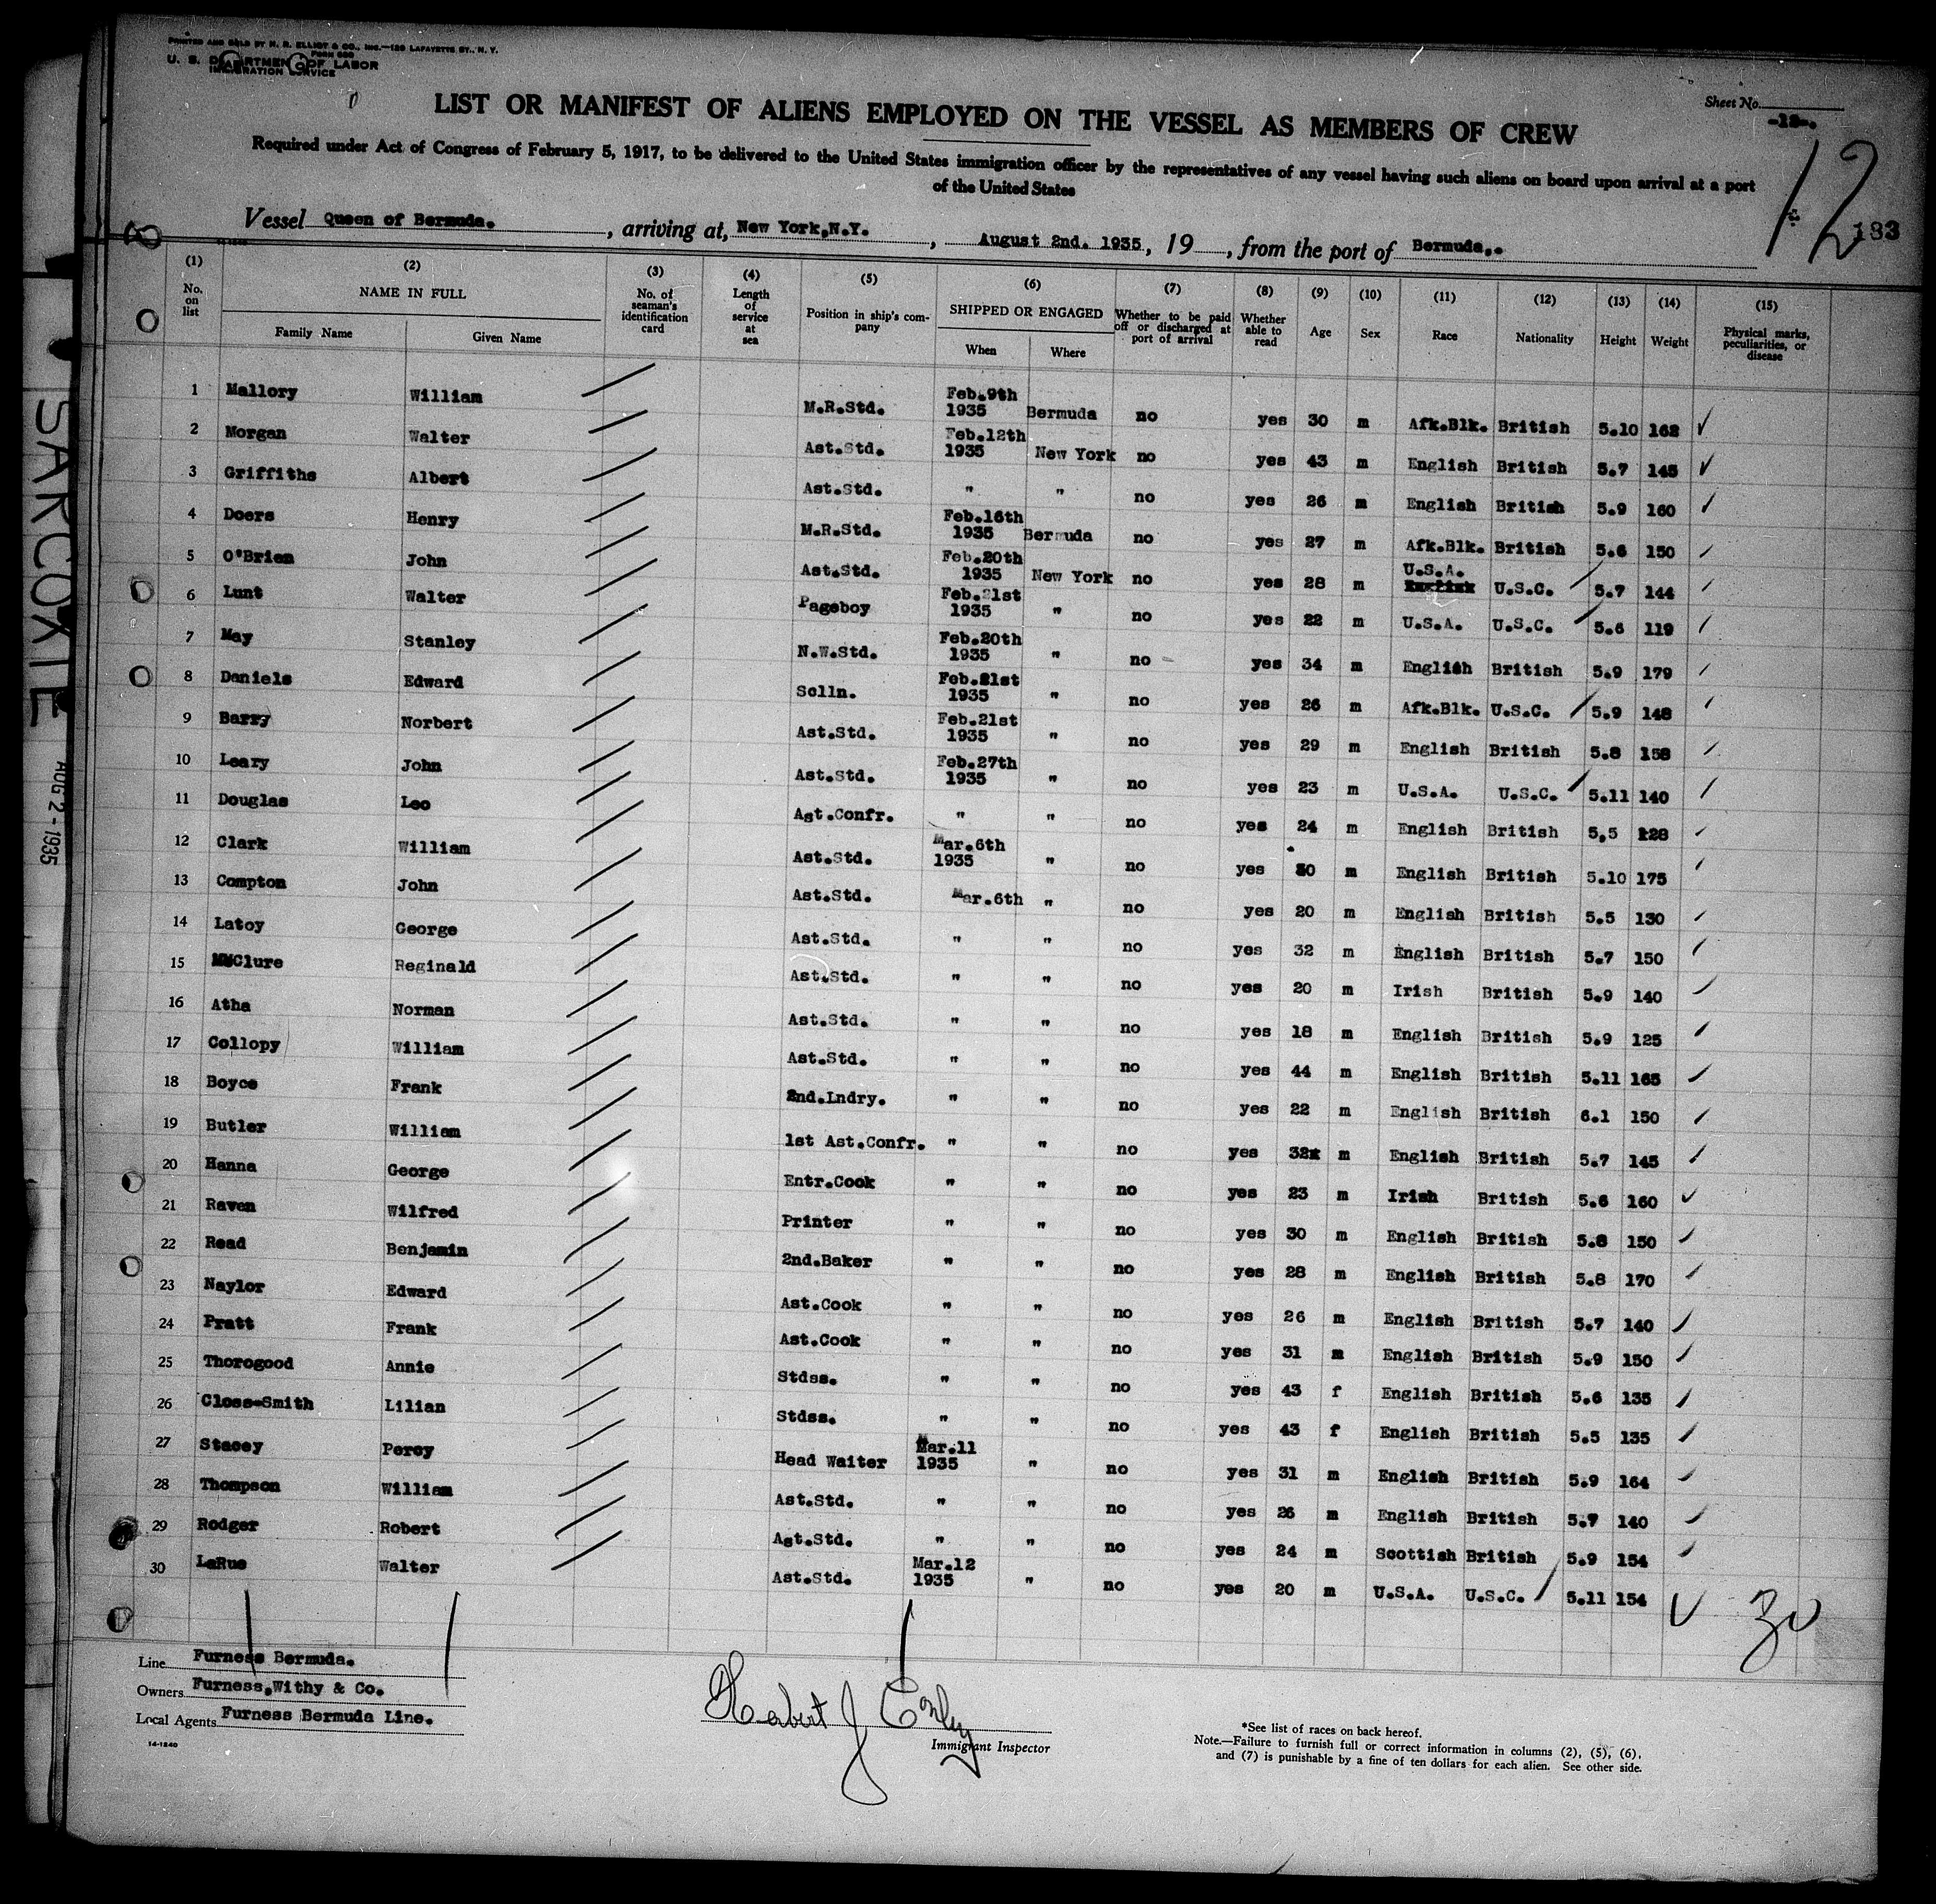 PRINTED AND SOLD BY N. R. ELLIOT & CO., INC.—129 LAFAYETTE ST., N. Y.
FORM 680
U. S. DEPARTMENT OF LABOR
IMMIGRATION SERVICE
LIST OR MANIFEST OF ALIENS EMPLOYED ON THE VESSEL AS MEMBERS OF CREW
Sheet No.
-12-.
12
183
Required under Act of Congress of February 5, 1917, to be delivered to the United States immigration officer by the representatives of any vessel having such aliens on board upon arrival at a port
of the United States
Vessel Queen of Bermuda. , arriving at, New York,N.Y. , August 2nd. 1935, 19 , from the port of Bermuda..
(1) No. on list
(2) NAME IN FULL Family Name Given Name
(3) No. of seaman's identification card
(4) Length of service at sea
(5) Position in ship's company
(6) SHIPPED OR ENGAGED When Where
(7) Whether to be paid off or discharged at port of arrival
(8) Whether able to read
(9) Age
(10) Sex
(11) Race
(12) Nationality
(13) Height
(14) Weight
(15) Physical marks, peculiarities, or disease
1 Mallory William M.R.Std. Feb.9th 1935 Bermuda no yes 30 m Afk.Blk. British 5.10 162
2 Morgan Walter Ast.Std. Feb.12th 1935 New York no yes 43 m English British 5.7 145
3 Griffiths Albert Ast.Std. " " no yes 26 m English British 5.9 160
4 Doers Henry M.R.Std. Feb.16th 1935 Bermuda no yes 27 m Afk.Blk. British 5.6 150
5 O'Brien John Ast.Std. Feb.20th 1935 New York no yes 28 m U.S.A. U.S.C. 5.7 144
6 Lunt Walter Pageboy Feb.21st 1935 " no yes 22 m U.S.A. U.S.C. 5.6 119
7 May Stanley N.W.Std. Feb.20th 1935 " no yes 34 m English British 5.9 179
8 Daniels Edward Sclln. Feb.21st 1935 " no yes 26 m Afk.Blk. U.S.C. 5.9 148
9 Barry Norbert Ast.Std. Feb.21st 1935 " no yes 29 m English British 5.8 158
10 Leary John Ast.Std. Feb.27th 1935 " no yes 23 m U.S.A. U.S.C. 5.11 140
11 Douglas Leo Ast.Confr. " " no yes 24 m English British 5,5 128
12 Clark William Ast.Std. Mar.6th 1935 " no yes 30 m English British 5.10 175
13 Compton John Ast.Std. Mar.6th " no yes 20 m English British 5.5 130
14 Latoy George Ast.Std. " " no yes 32 m English British 5.7 150
15 McClure Reginald Ast.Std. " " no yes 20 m Irish British 5.9 140
16 Atha Norman Ast.Std. " " no yes 18 m English British 5.9 125
17 Collopy William Ast.Std. " " no yes 44 m English British 5.11 165
18 Boyce Frank 2nd.Lndry. " " no yes 22 m English British 6.1 150
19 Butler William 1st Ast.Confr. " " no yes 32 m English British 5.7 145
20 Hanna George Entr.Cook " " no yes 23 m Irish British 5.6 160
21 Raven Wilfred Printer " " no yes 30 m English British 5.8 150
22 Read Benjamin 2nd.Baker " " no yes 28 m English British 5.8 170
23 Naylor Edward Ast.Cook " " no yes 26 m English British 5.7 140
24 Pratt Frank Ast.Cook " " no yes 31 m English British 5.9 150
25 Thorogood Annie Stdss. " " no yes 43 f English British 5.6 135
26 Closs-Smith Lilian Stdss. " " no yes 43 f English British 5.5 135
27 Stacey Percy Head Waiter Mar.11 1935 " no yes 31 m English British 5.9 164
28 Thompson William Ast.Std. " " no yes 26 m English British 5.7 140
29 Rodger Robert Ast.Std. " " no yes 24 m Scottish British 5.9 154
30 LaRue Walter Ast.Std. Mar.12 1935 " no yes 20 m U.S.A. U.S.C. 5.11 154
30
Line Furness Bermuda.
Owners Furness,Withy & Co.
Local Agents Furness Bermuda Line.
14-1240
Herbert J Conley
Immigrant Inspector
*See list of races on back hereof.
Note.—Failure to furnish full or correct information in columns (2), (5), (6),
and (7) is punishable by a fine of ten dollars for each alien. See other side.
SARCOXIE
AUG 2 - 1935